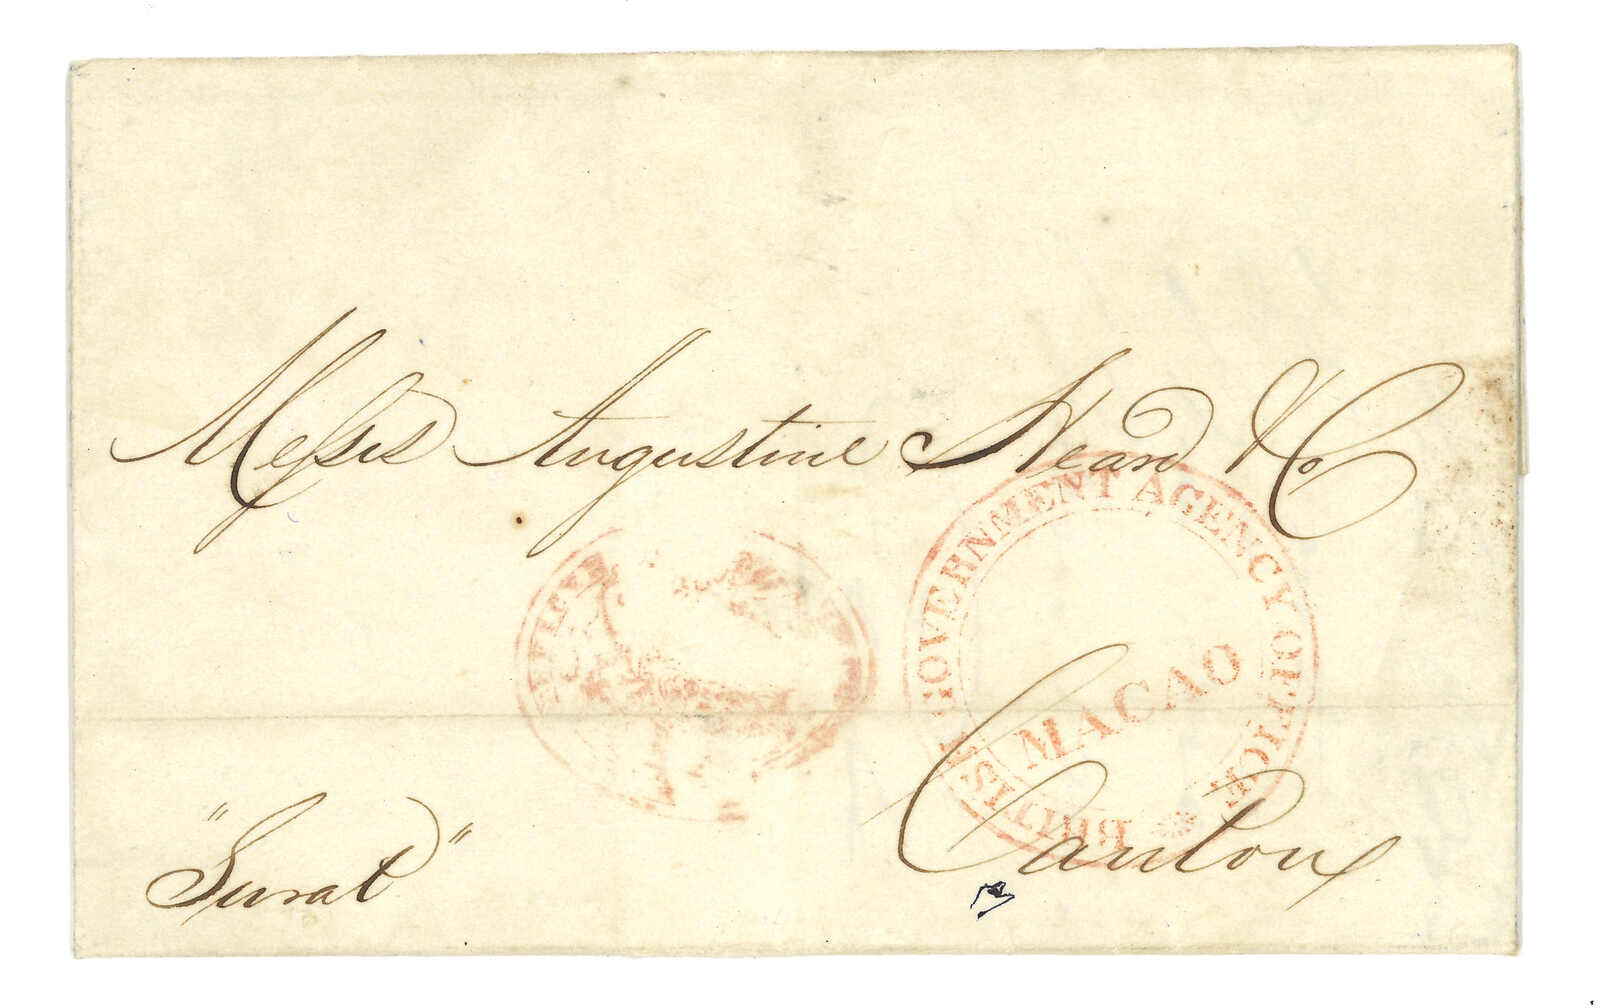 Messrs Augustine Heard & Co
BRITISH GOVERNMENT AGENCY OFFICE
MACAO
Canton
"Surat"